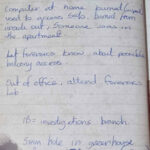 Computer at home burned/
used to queries Sato, burned from
inside out. Someone was in
the apartment
Let forensics know about possible
balcony access
Out of office, attend forensics
Lab
16= investigations branch
5mm hole in greenhouse